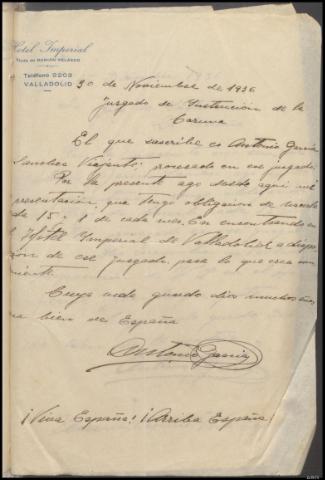 Hotel Imperial
Viuda de MARIAN VELASCO
Teléfono 2203
VALLADOLID
30 de Noviembre de 1936
Juzgado de Instrucion de la
Coruna
El que suscribe es Antonio Garcia
Sanchez procesado en ese juzgado
Por la presente ago saber aqui mi
resentacion, que tengo obligacion de
de 15 y 1 de cada mes. En
l Hotel Imperial de Valladolid a dispo
on de ese juzgado para lo que crea con
niente
Cuya vida guarde dios muchos años
ra bien de España
Antonio Garcia
¡Viva España! ¡Arriba España!